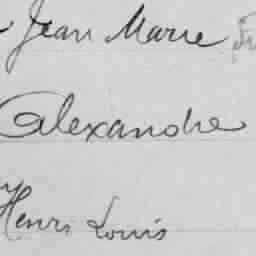 Jean Marie
Alexandre
Henri Louis